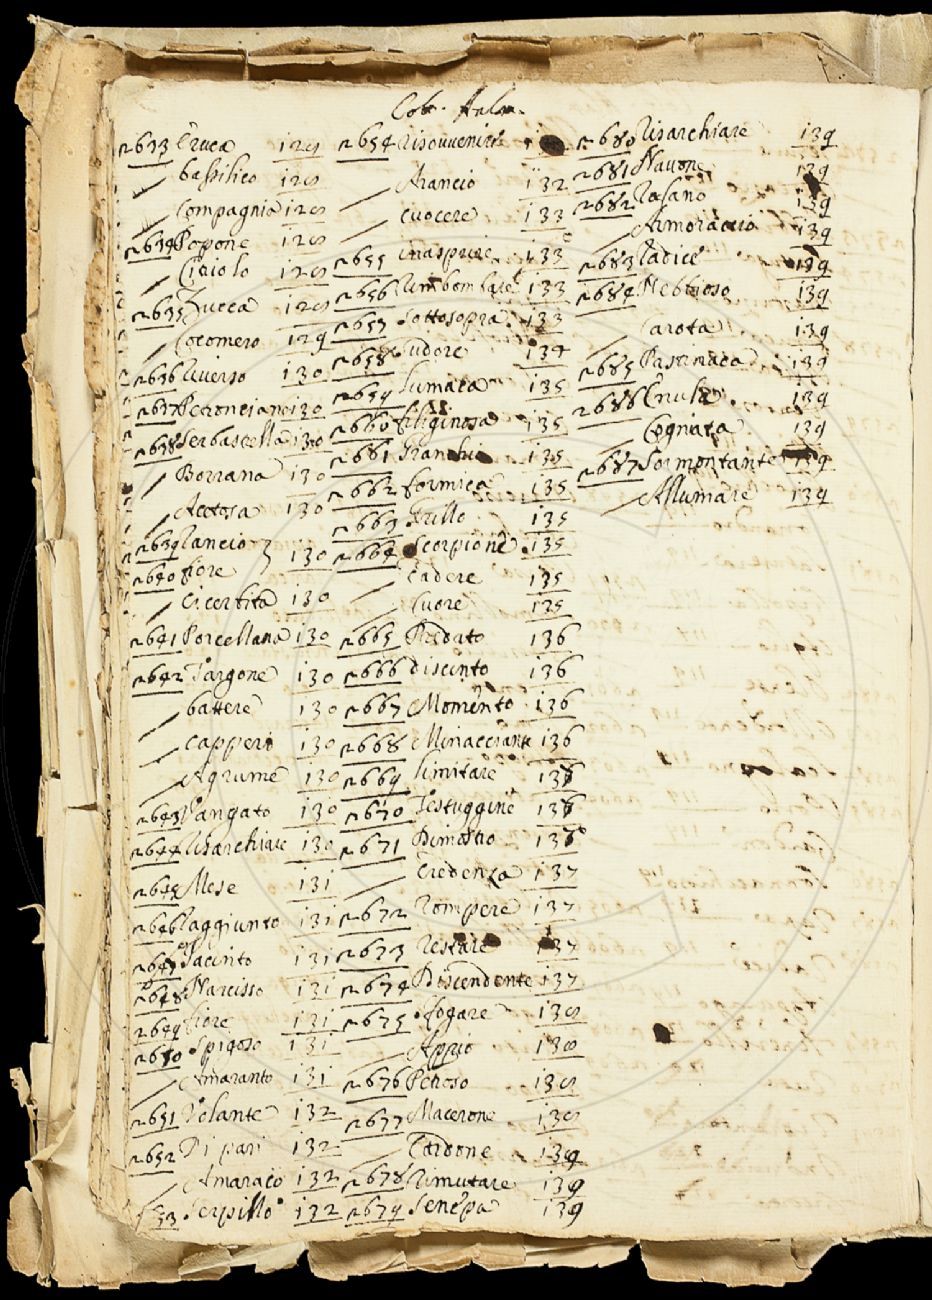 Col. Aula.
n633 Eruca 129
basilico 129
Compagnia 129
n634 Popone 129
Citiolo 129
n635 Zucca 129
Cocomero 129
n636 Riverso 130
n637 Petronciano 130
n638 Serbastella 130
Borrana 130
Acetosa 130
n639 Rancio
n640 fiore } 130
Cicerbita 130
n641 Porcellana 130
n642 Targone 130
battere 130
Capperi 130
Agrume 130
n643 Vangato 130
n644 Risarchiare 130
n645 Mese 131
n646 Raggiunto 131
n647 Jacinto 131
n648 Narcisso 131
n649 fiore 131
n650 Spigoso 131
Amaranto 131
n651 Volante 132
n652 Di pari 132
Amaraco 132
n653 Serpillo 132
n654 risouvenire
Arancio 132
Cuocere 133
n655 inasprire 133
n656 Rimbombare 133
n657 Sottosopra 133
n658 Sudore 134
n659 Lumaca 135
n660 filiginosa 135
n661 Granchio 135
n662 formica 135
n663 Grillo 135
n664 Scorpione 135
Cadere 135
Cuore 135
n665 Predato 136
n666 discinto 136
n667 Momento 136
n668 Minacciante 136
n669 Limitare 136
n670 Testuggine 136
n671 Dimostro 136
Credenza 137
n672 Rompere 137
n673 Restare 137
n674 Discendente 137
n675 Sfogare 138
Appio 138
n676 Petroso 138
n677 Macerone 138
Cardone 139
n678 Rimutare 139
n679 Senepa 139
n680 Risarchiare 139
n681 Navone 139
n682 Rafano 139
Armoraccio 139
n683 Radice 139
n684 Nebbioso 139
Carota 139
n685 Pastinaca 139
n686 Enula 139
Cognata 139
n687 Sormontante 139
Allumare 139